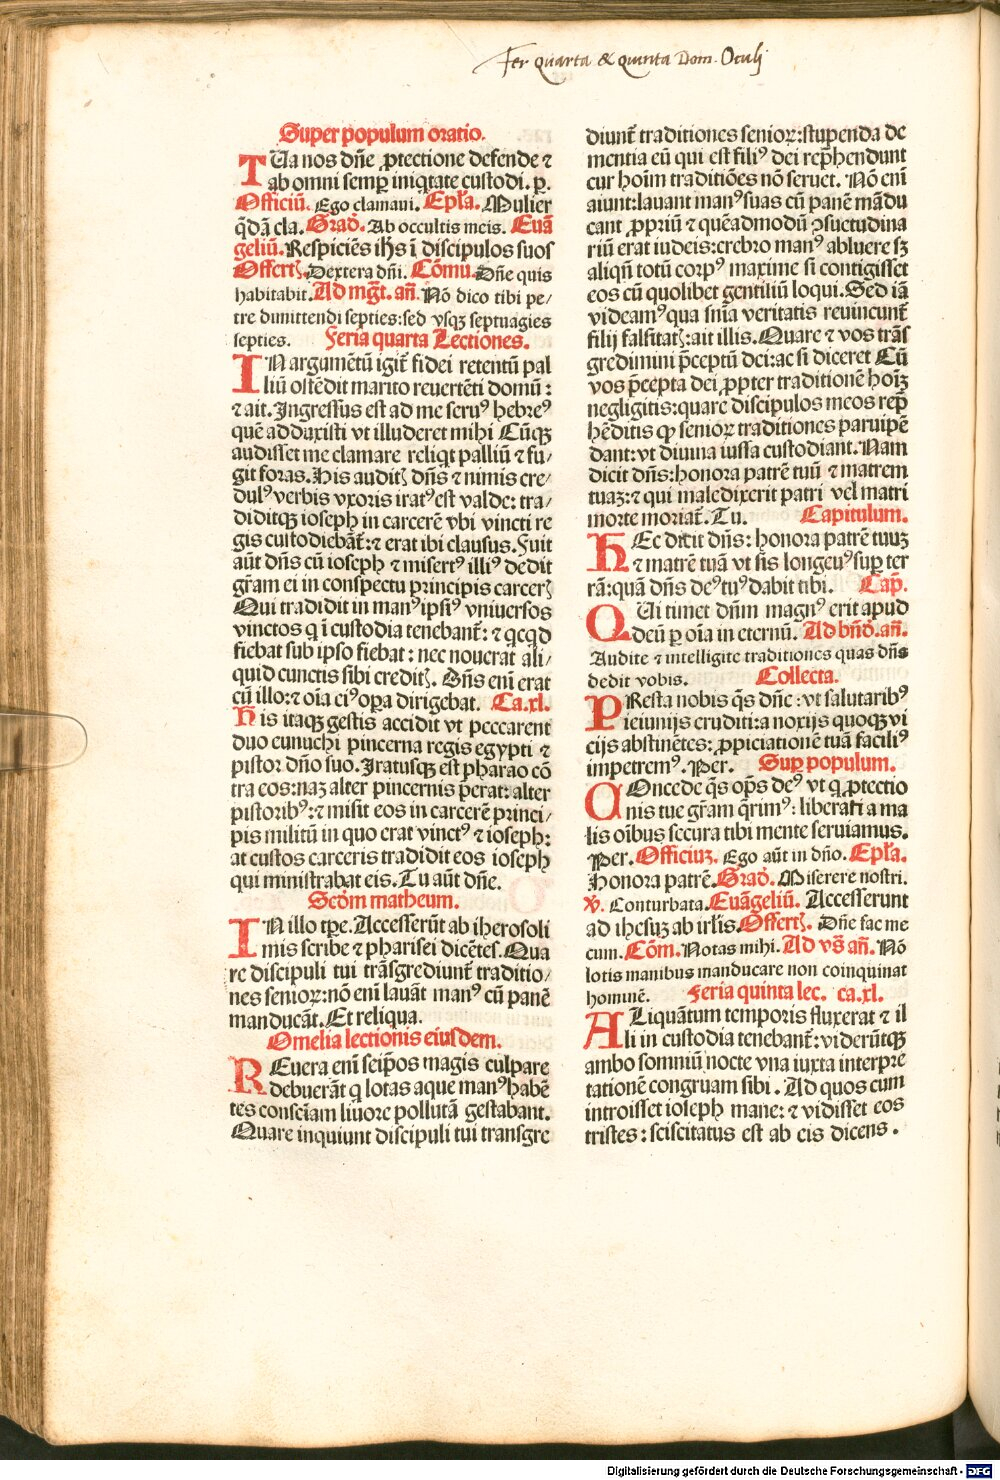 Fer Quarta & Quinta Dom. Oculj
Super populum oratio.
TUa nos dñe ꝓtectione defende ⁊
ab omni semꝑ iniq̇tate custodi. ꝑ.
Officiũ. Ego clamaui. Epl̃a. Mulier
q̇dã cla. Grad̃. Ab occultis meis. Euã
geliũ. Respiciẽs ihs ĩ discipulos suos
Offertꝭ. Dextera dñi. Cõmu. Dñe quis
habitabit. Ad mg̃t. añ. Nõ dico tibi pe/
tre dimittendi septies: sed vsqꝫ septuagies
septies. Feria quarta Lectiones.
IN argumẽtũ igit̃ fidei retentũ pal
liũ ostẽdit marito reuertẽti domũ:
⁊ ait. Ingressus est ad me seruꝰ hebreꝰ
quẽ adduxisti vt illuderet mihi Cũqꝫ
audisset me clamare reliq̇t palliũ ⁊ fu/
git foras. His auditꝭ dñs ⁊ nimis cre/
dulꝰ verbis vxoris iratꝰ est valde: tra/
diditqꝫ ioseph in carcerẽ vbi vincti re
gis custodiebãt̃: ⁊ erat ibi clausus. Fuit
aũt dñs cũ ioseph ⁊ misertꝰ illiꝰ dedit
gr̃am ei in conspectu principis carcerꝭ
Qui tradidit in manꝰ ipsiꝰ vniuersos
vinctos q̇ ĩ custodia tenebant̃: ⁊ qcq̇d
fiebat sub ipso fiebat: nec nouerat ali/
quid cunctis sibi creditꝭ. Dñs enĩ erat
cũ illo: ⁊ oĩa eiꝰ oꝑa dirigebat. Ca.xl.
His itaqꝫ gestis accidit vt peccarent
duo eunuchi pincerna regis egypti ⁊
pistor dño suo. Iratusqꝫ est pharao cõ
tra eos: naꝫ alter pincernis p̃erat: alter
pistoribꝰ: ⁊ misit eos in carcerẽ princi/
pis militũ in quo erat vinctꝰ ⁊ ioseph:
at custos carceris tradidit eos ioseph
qui ministrabat eis. Tu aũt dñe.
Scd̃m matheum.
IN illo tꝑe. Accesserũt ab iherosoli
mis scribe ⁊ pharisei dicẽtes. Qua
re discipuli tui trãsgrediunt̃ traditio/
nes senioꝝ: nõ enĩ lauãt manꝰ cũ panẽ
manducãt. Et reliqua.
Omelia lectionis eiusdem.
REuera enĩ seip̃os magis culpare
debuerãt q̇ lotas aque manꝰ habẽ
tes consciãm liuore pollutã gestabant.
Quare inquiunt discipuli tui transgre
diunt̃ traditiones senioꝝ: stupenda de
mentia eũ qui est filiꝰ dei rep̃hendunt
cur hoĩm traditiões nõ seruet. Nõ enĩ
aiunt: lauant manꝰ suas cũ panẽ mãdu
cant ꝓpriũ ⁊ quẽadmodũ ꝯsuetudina
riũ erat iudeis: crebro manꝰ abluere sꝫ
aliqñ totũ corpꝰ maxime si contigisset
eos cũ quolibet gentiliũ loqui. Sed iã
videamꝰ qua sñia veritatis reuincunt̃
filij falsitatꝭ: ait illis. Quare ⁊ vos trãs
gredimini p̃ceptũ dei: ac si diceret Cũ
vos p̃cepta dei ꝓpter traditionẽ hoĩꝫ
negligitis: quare discipulos meos rep̃
hẽditis ꝙ senioꝝ traditiones paruipẽ
dant: vt diuina iussa custodiant. Nam
dicit dñs: honora patrẽ tuũ ⁊ matrem
tuaꝫ: ⁊ qui maledixerit patri vel matri
morte moriat̃. Tu. Capitulum.
HEc dicit dñs: honora patrẽ tuuꝫ
⁊ matrẽ tuã vt sis longeuꝰ suꝑ ter
rã: quã dñs deꝰ tuꝰ dabit tibi. Cap̃.
QUi timet dñm magnꝰ erit apud
deũ ꝑ oĩa in eternũ. Ad bñd̃. añ.
Audite ⁊ intelligite traditiones quas dñs
dedit vobis. Collecta.
PResta nobis q̃s dñe: vt salutaribꝰ
ieiunijs eruditi: a noxijs quoqꝫ vi
cijs abstinẽtes: ꝓpiciationẽ tuã faciliꝰ
impetremꝰ. Per. Suꝑ populum.
COncede q̃s op̃s deꝰ vt q̇ ꝓtectio
nis tue gr̃am q̃rimꝰ: liberati a ma
lis oĩbus secura tibi mente seruiamus.
Per. Officiuꝫ. Ego aũt in dño. Epl̃a.
Honora patrẽ. Grad̃. Miserere nostri.
℣. Conturbata. Euãgeliũ. Accesserunt
ad ihesuꝫ ab irl̃is. Offertꝭ. Dñe fac me
cum. Cõm. Notas mihi. Ad vs̃ añ. Nõ
lotis manibus manducare non coinquinat
hominẽ. Feria quinta lec. ca.xl.
ALiquãtum temporis fluxerat ⁊ il
li in custodia tenebant̃: viderũtqꝫ
ambo somniũ nocte vna iuxta interpre
tationẽ congruam sibi. Ad quos cum
introisset ioseph mane: ⁊ vidisset eos
tristes: sciscitatus est ab eis dicens.
Digitalisierung gefördert durch die Deutsche Forschungsgemeinschaft - DFG